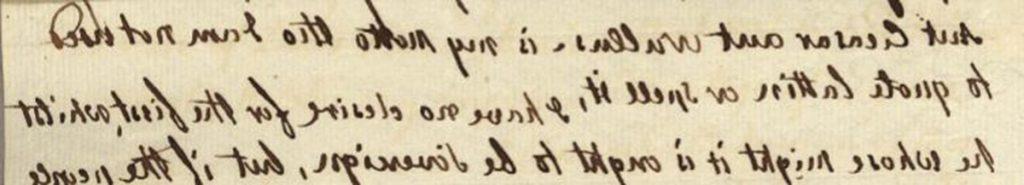 Aut Ceasar aut Nullus is my Motto tho I am not used
to quote lattin or spell it, I have no desire for the first, whilst
he whose might it is ought to be Sovereign, but if the people